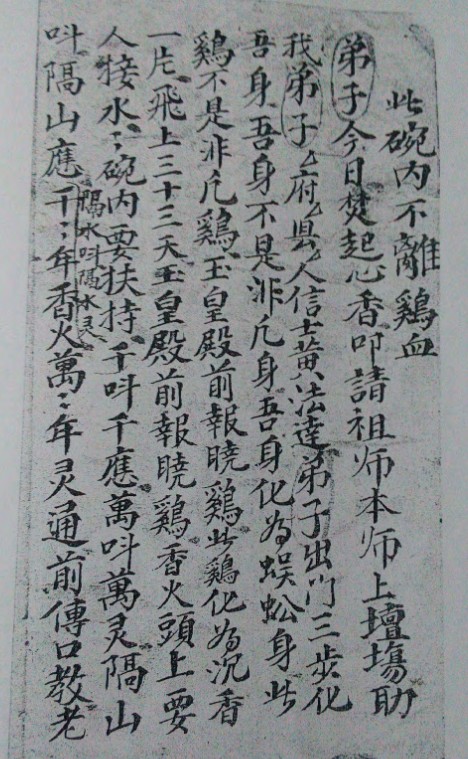 此碗内不離鷄血
弟子今日焚起心香叩請祖师本师上壇塲助
我弟子厶府厶县厶人信士黄法達弟子出门三步化
吾身吾身不是非凢身吾身化为蜈蚣身此
鷄不是非凢鷄玉皇殿前報曉鷄此鷄化为沉香
一片飛上三十三天玉皇殿前報曉鷄香火頭上要
人接水〻碗内要扶持千呌千應萬呌萬灵隔山
隔水呌隔水灵
呌隔山應千〻年香火萬〻年灵通前傳口教老